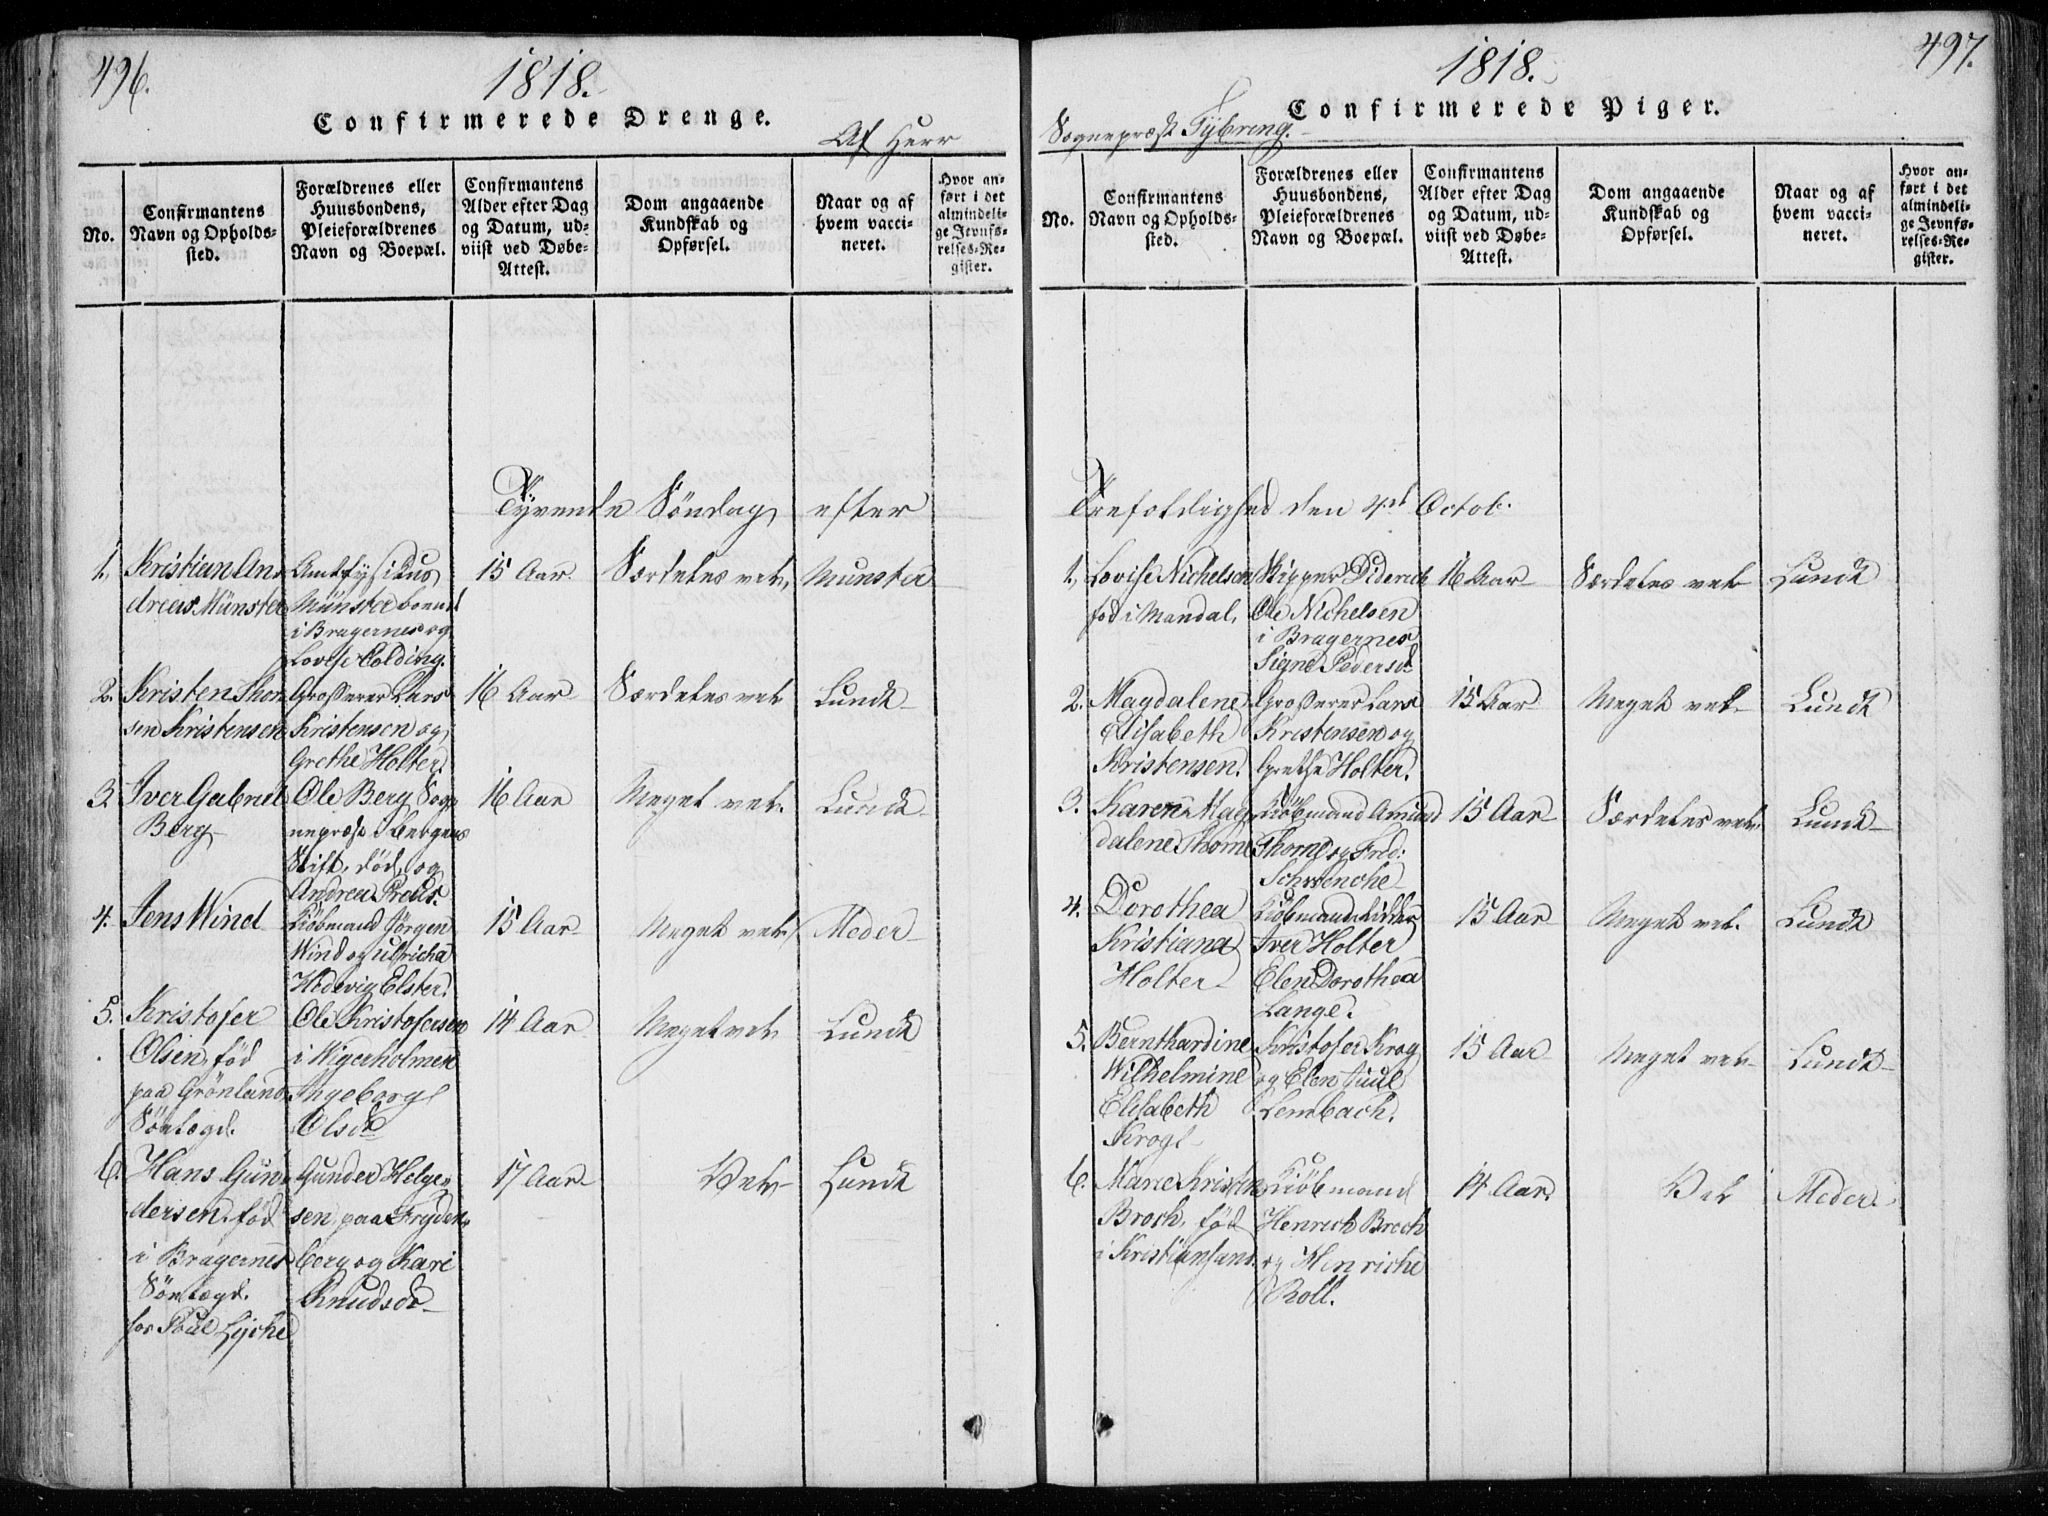 496.
1818.
Confirmerede Drenge.
Af Herr
No.
Confirmantens
Navn og Opholds-
sted.
Forældrenes eller
Huusbondens,
Pleieforældrenes
Navn og Boepæl.
Confirmantens
Alder efter Dag
og Datum, ud-
viist ved Døbe-
Attest.
Dom angaaende
Kundskab og
Opførsel.
Naar og af
hvem vacci-
neret.
Hvor an-
ført i det
almindeli-
ge Jevnfø-
relses-Re-
gister.
Tyvende Söndag efter
1. Kristian An-
dreas Münster
Amtfysikus
Münster boend
i Bragernes og
Lovise Colding.
15 Aar
Særdeles vel,
Munster
2. Kristen Thom
sen Kristensen
Grosserer Lars
Kristensen og
Grethe Holter.
16 Aar
Særdeles vel
Lundt
3. Iver Gabriel
Berg
Ole Berg Sog-
nepræst i Bergens
Stift, död, og
Andrea Preus.
16 Aar
Meget vel.
Lundt
4. Jens Wind
Kiöbmand Jörgen
Wind og Ulricha
Hedevig Elster.
15 Aar
Meget vel.
Meder
5. Kristofer
Olsen, föd
paa Grönland
Sönlægd.
Ole Kristofersen
i Nigerholmen
Ingeborg
Olsdr
14 Aar
Meget vel
Lundt
6. Hans Gun-
dersen, föd
i Bragernes
Sönlægd.
hos Poul Lyche
Gunder Helge-
sen paa Fryden-
berg og Kari
Knudsdr
17 Aar
Vel
Lundt
497.
1818.
Confirmerede Piger.
Sognepræst Tybring.
No.
Confirmantens
Navn og Opholds-
sted.
Forældrenes eller
Huusbondens,
Pleieforældrenes
Navn og Boepæl.
Confirmantens
Alder efter Dag
og Datum, ud-
viist ved Døbe-
Attest.
Dom angaaende
Kundskab og
Opførsel.
Naar og af
hvem vacci-
neret.
Hvor an-
ført i det
almindeli-
ge Jevnfø-
relses-Re-
gister.
Trefoldighed den 4de Octob.
1. Lovise Nichelsen
föd i Mandal,
Skipper Diderich
Ole Nichelsen
i Bragernes
Signe Pedersd
16 Aar
Særdeles vel
Lundt
2. Magdalene
Elisabeth
Kristensen.
Grosserer Lars
Kristensen og
Grethe Holter.
15 Aar
Meget vel
Lundt
3. Karen Mag
dalene Thorne
Kiöbmand Amund
Thorne og Fred:
Schwenche
15 Aar
Særdeles vel.
Lundt
4. Dorothea
Kristiana
Holter
Kiöbmand
Iver Holter
Elen Dorothea
Lange.
15 Aar
Meget vel.
Lundt
5. Bernthardine
Wilhelmine
Elisabeth
Krog
Kristofer Krog
og Elen Juul
Lembach.
15 Aar
Meget vel
Lundt
6. Marie Kristin
Broch, föd
i Kristiansand.
Kiöbmand
Henrich Broch
og Henriche
Roll.
14 Aar.
Vel
Meder.